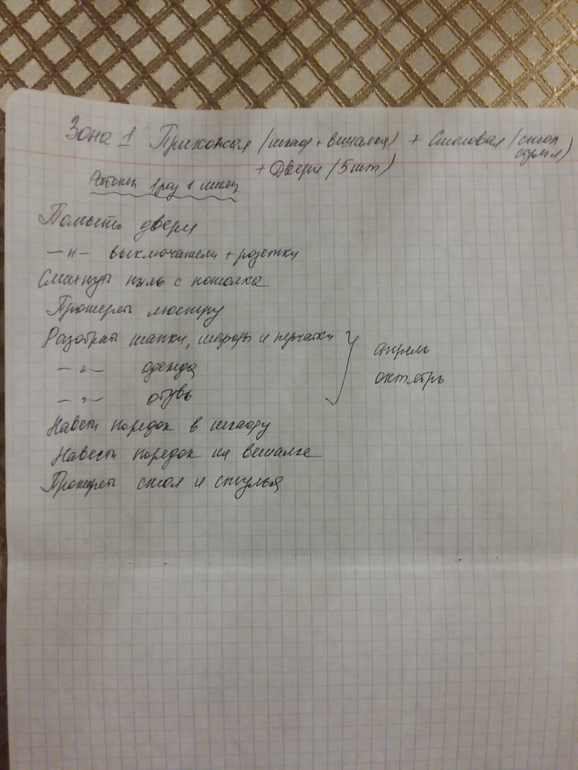 Зона 1 Прихожая (шкаф + вешалка) + Столовая (стол
стулья)
+ Двери (5 шт)
1 раз в
Помыть двери
—"— выключатели + розетки
Смахнуть пыль с потолка
Протереть люстру
Разобрать шапки, шарфы и перчатки
—"— одежда
—"— обувь
апрель
октябрь
Навести порядок в шкафу
Навести порядок на вешалке
Протереть стол и стулья